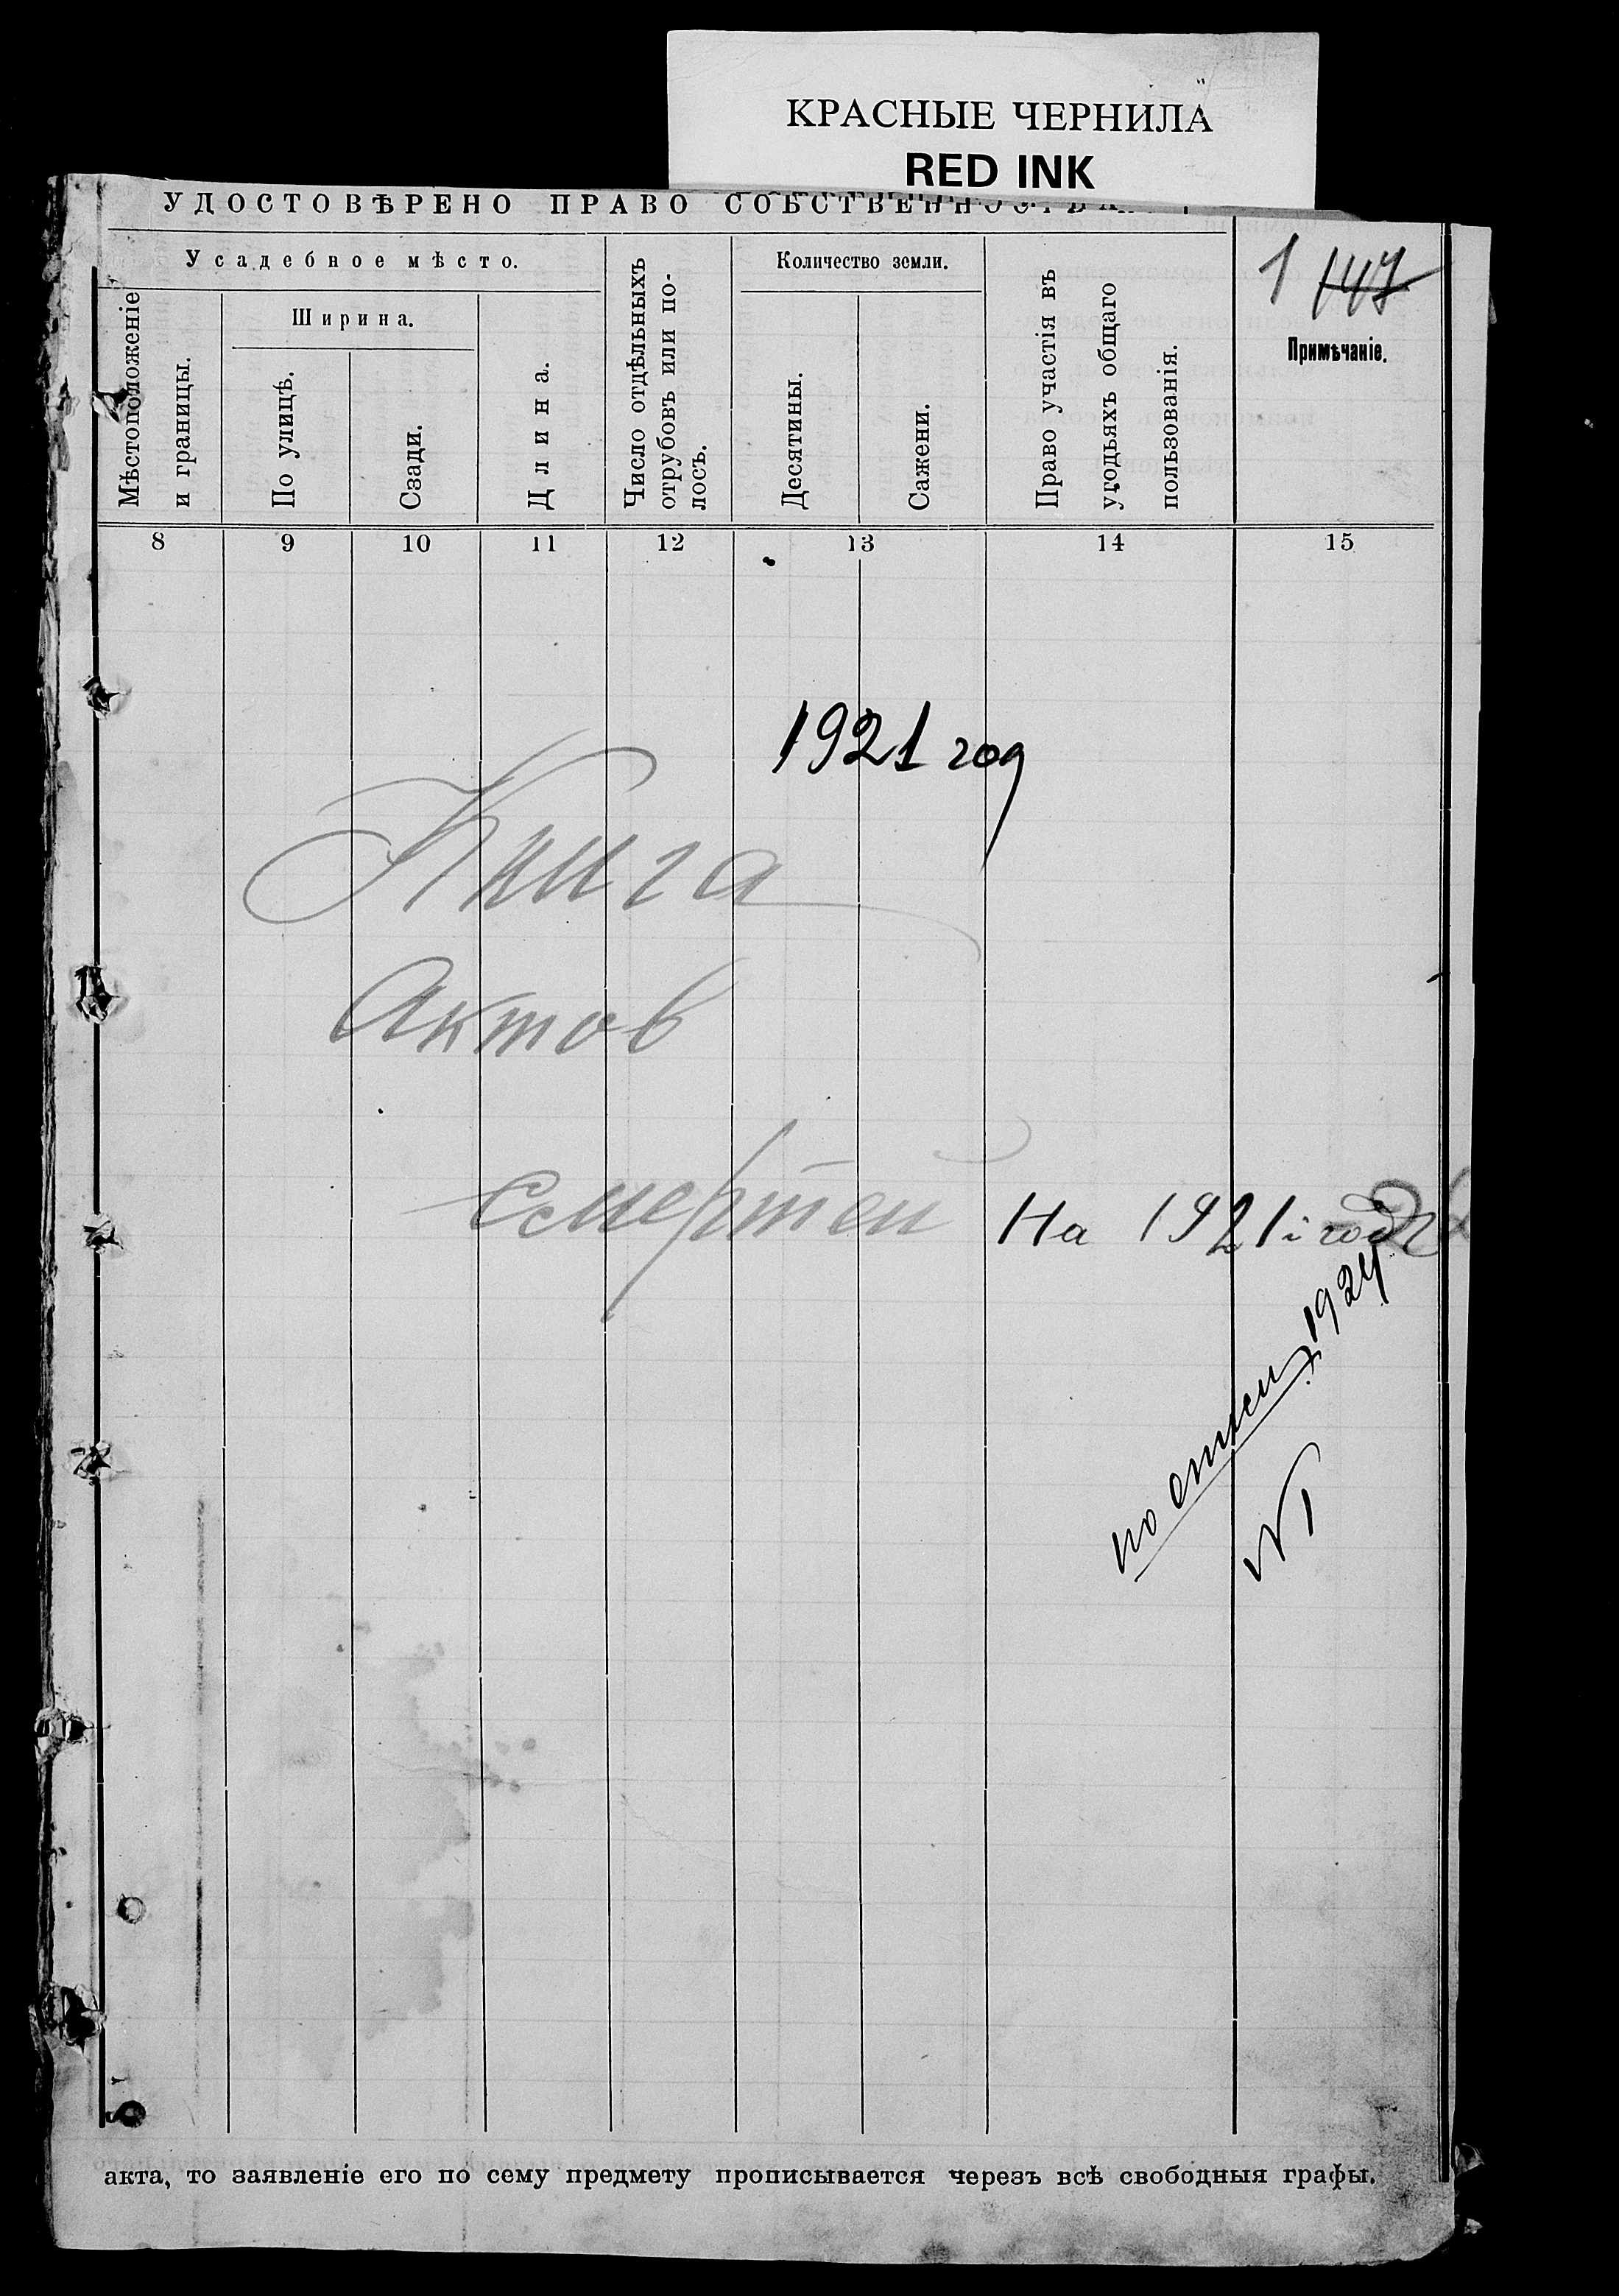 КРАСНЫЕ ЧЕРНИЛА
RED INK
УДОСТОВѢРЕНО ПРАВО
1 147
Усадебное мѣсто.
Количество земли.
Ширина.
Мѣстоположеніе
и границы.
По улицѣ.
Сзади.
Длина.
Число отдѣльныхъ
отрубовъ или по-
лосъ.
Десятины.
Сажени.
Право участія въ
угодьяхъ общаго
пользованія.
Примѣчаніе.
8 9 10 11 12 13 14 15
1921 год
Книга
Актов
Смертей На 1921й год
по 1924
№ 1
акта, то заявленіе его по сему предмету прописывается черезъ всѣ свободныя графы.